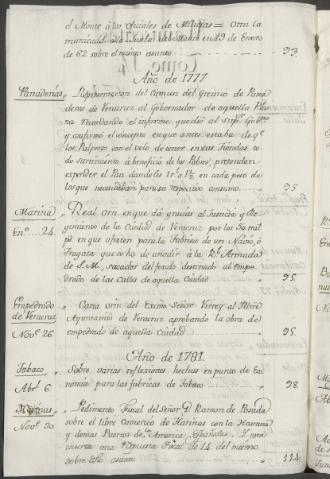 el Monte á los oficiales de Milicias = Otra la
en 19 de Enero
de 62 sobre el mismo asunto 93.
Año de 1777
Panaderias, Representacion del Comun del Gremio de Pana
deros de Veracruz al Gobernador de aquella Pla
za recordando el informe, que dió al
y confirmó el concepto en que antes estaba de qe
los Pulperos con el velo de tener en sus Tiendas to
do surtimiento á beneficio de los Pobres, pretenden
expender el Pan dandoles 1 r. ó 1½ en cada peso de
los que necesitaban para su respectivo consumo 95
Marina
En.o 24.
Real orn en que dá gracias al Justicia y Re
gimiento de la Ciudad de Veracruz por los 30 mil
ps en que ofrecen para la Fabrica de un Navio, ó
Fragata que se ha de añadir á la Rl Armada
de S.M., sacados del fondo destinado al empe
drado de las Calles de aquella Ciudad 95.
Empedrado
de Veracruz
Nove 26
Carta orn del Excmo Señor Virrey al Yltre
Ayuntamto de Veracruz aprobando la obra de
empedrado de aquella Ciudad 95.
Año de 1781.
Tabaco
Abr.l 6.
Sobre varias reflexiones hechas en punto de Eco
nomia para las fabricas de Tabaco 98.
Harinas
Nove 30.
Pedimento Fiscal del Señor D. Ramon de Posada
sobre el libre comercio de Harinas con la Havana
y demas Puertos de la America Española. Y con
una Respuesta Fiscal de 14 del mismo
sobre este asunto 114.